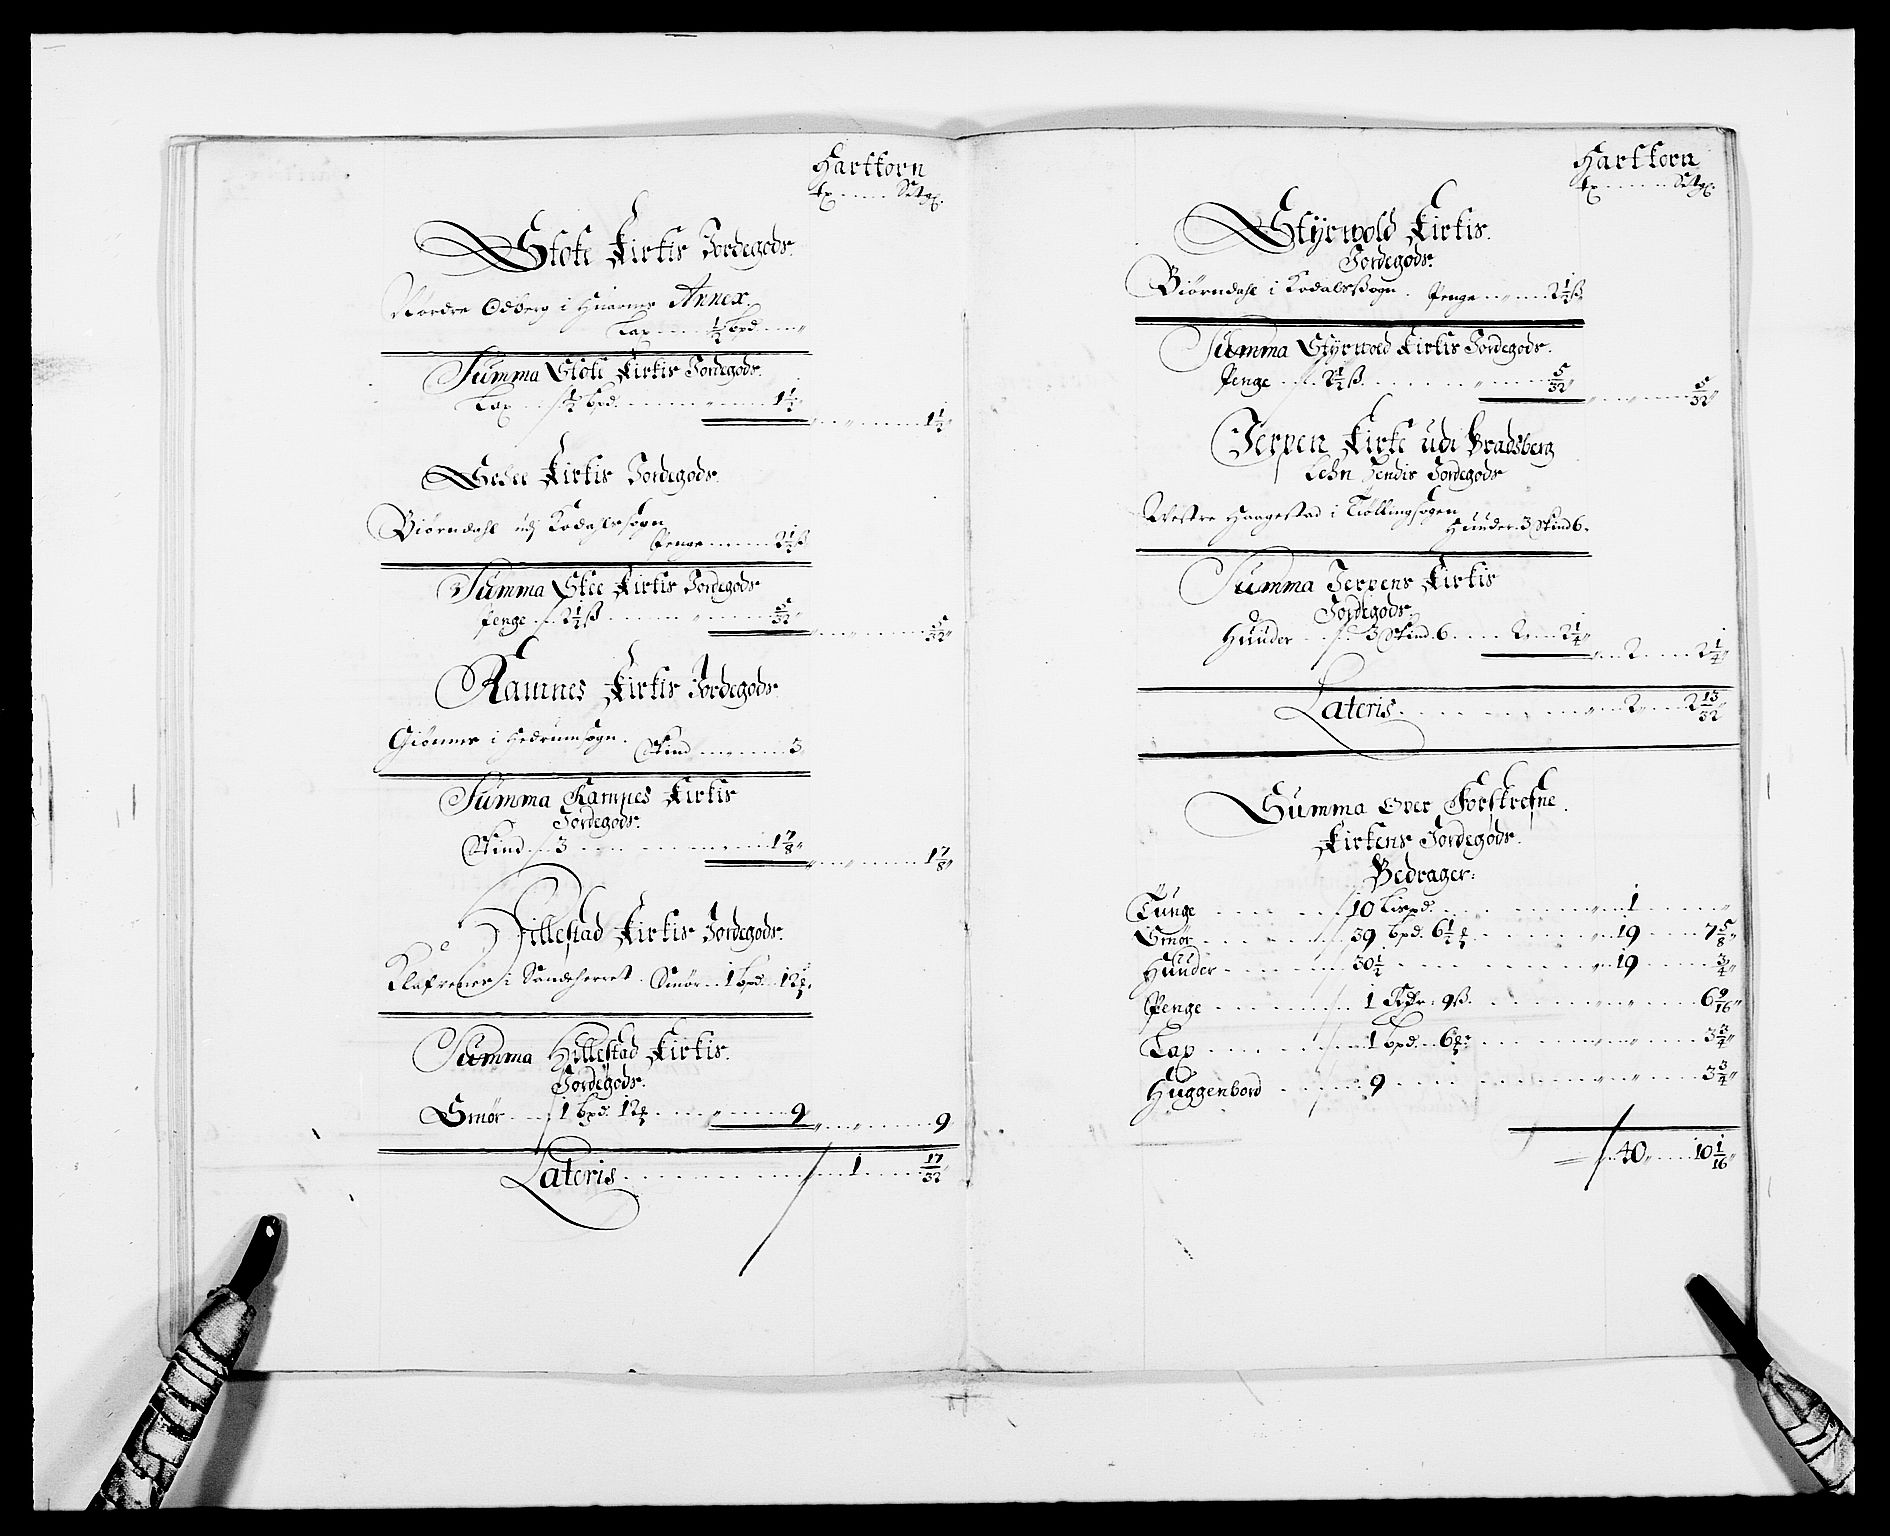 Harttorn
tr ..... Settg.
Stoke Kirkis Jordegods.
Nordre Odberg i Huarnes Annex.
Lax ...... ½ bpd ......
Summa Stoke Kirkis Jordegods.
Lax ... ½ bpd. ......... 1½
1½
Kirkis Jordegods.
Biørndahl udj Kodahlssogn
Penge ........ 2½ ß
Summa Kirkis Jordegods
Penge ... 2½ ß ........ 5/32
5/32
Ramnes Kirkis Jordegods.
Giønnes i Hedrumsogn. Skind ........ 3
Summa Ramnes Kirkis
Jordegods.
Skind .. 3 ............ 1 7/8
1 7/8
Hillestad Kirkis Jordegods.
i Sandeherret. Smør .. 1 bpd. 12
Summa Hillestad Kirkis.
Jordegods.
Smør .... 1 bpd. 12 ........ 9
9
Lateris .............. 1 .... 17/32
Harttorn
tr ..... Settg.
Styrwold Kirkis.
Jordegods.
Biørndahl i Kodalssogn. Penge ...... 2½ ß
Summa Styrwold Kirkis Jordegods.
Penge .... 2½ ß ........ 5/32
5/32
Jerpen Kirke udi Bradsberg
Lehn hendis Jordegods
Westre Haagestad i Tiöllingsogen
Huuder. 3 Skind 6.
Summa Jerpens Kirkis
Jordegods.
Huuder ... 3 Skind. 6 ..... 2 .. 2¼
2 .... 2¼
Lateris .............. 2 .... 2 13/32
Summa Over Forskrefne.
Kirkens Jordegods.
Bedrager:
Tunge ........ 10 Lispd. ........ 1
Smør ........ 39 bpd. 6½ ........ 19 .... 7 5/8
Huuder ........ 30½ ........ 19 .... 3/4
Penge ........ 1 Rdr: 9 ß. ........ 6 9/16
Lax ........ 1 bpd. 6 ........ 3 3/4
Huggenbord ........ 9 ........ 3 3/4
40 .... 10 1/16